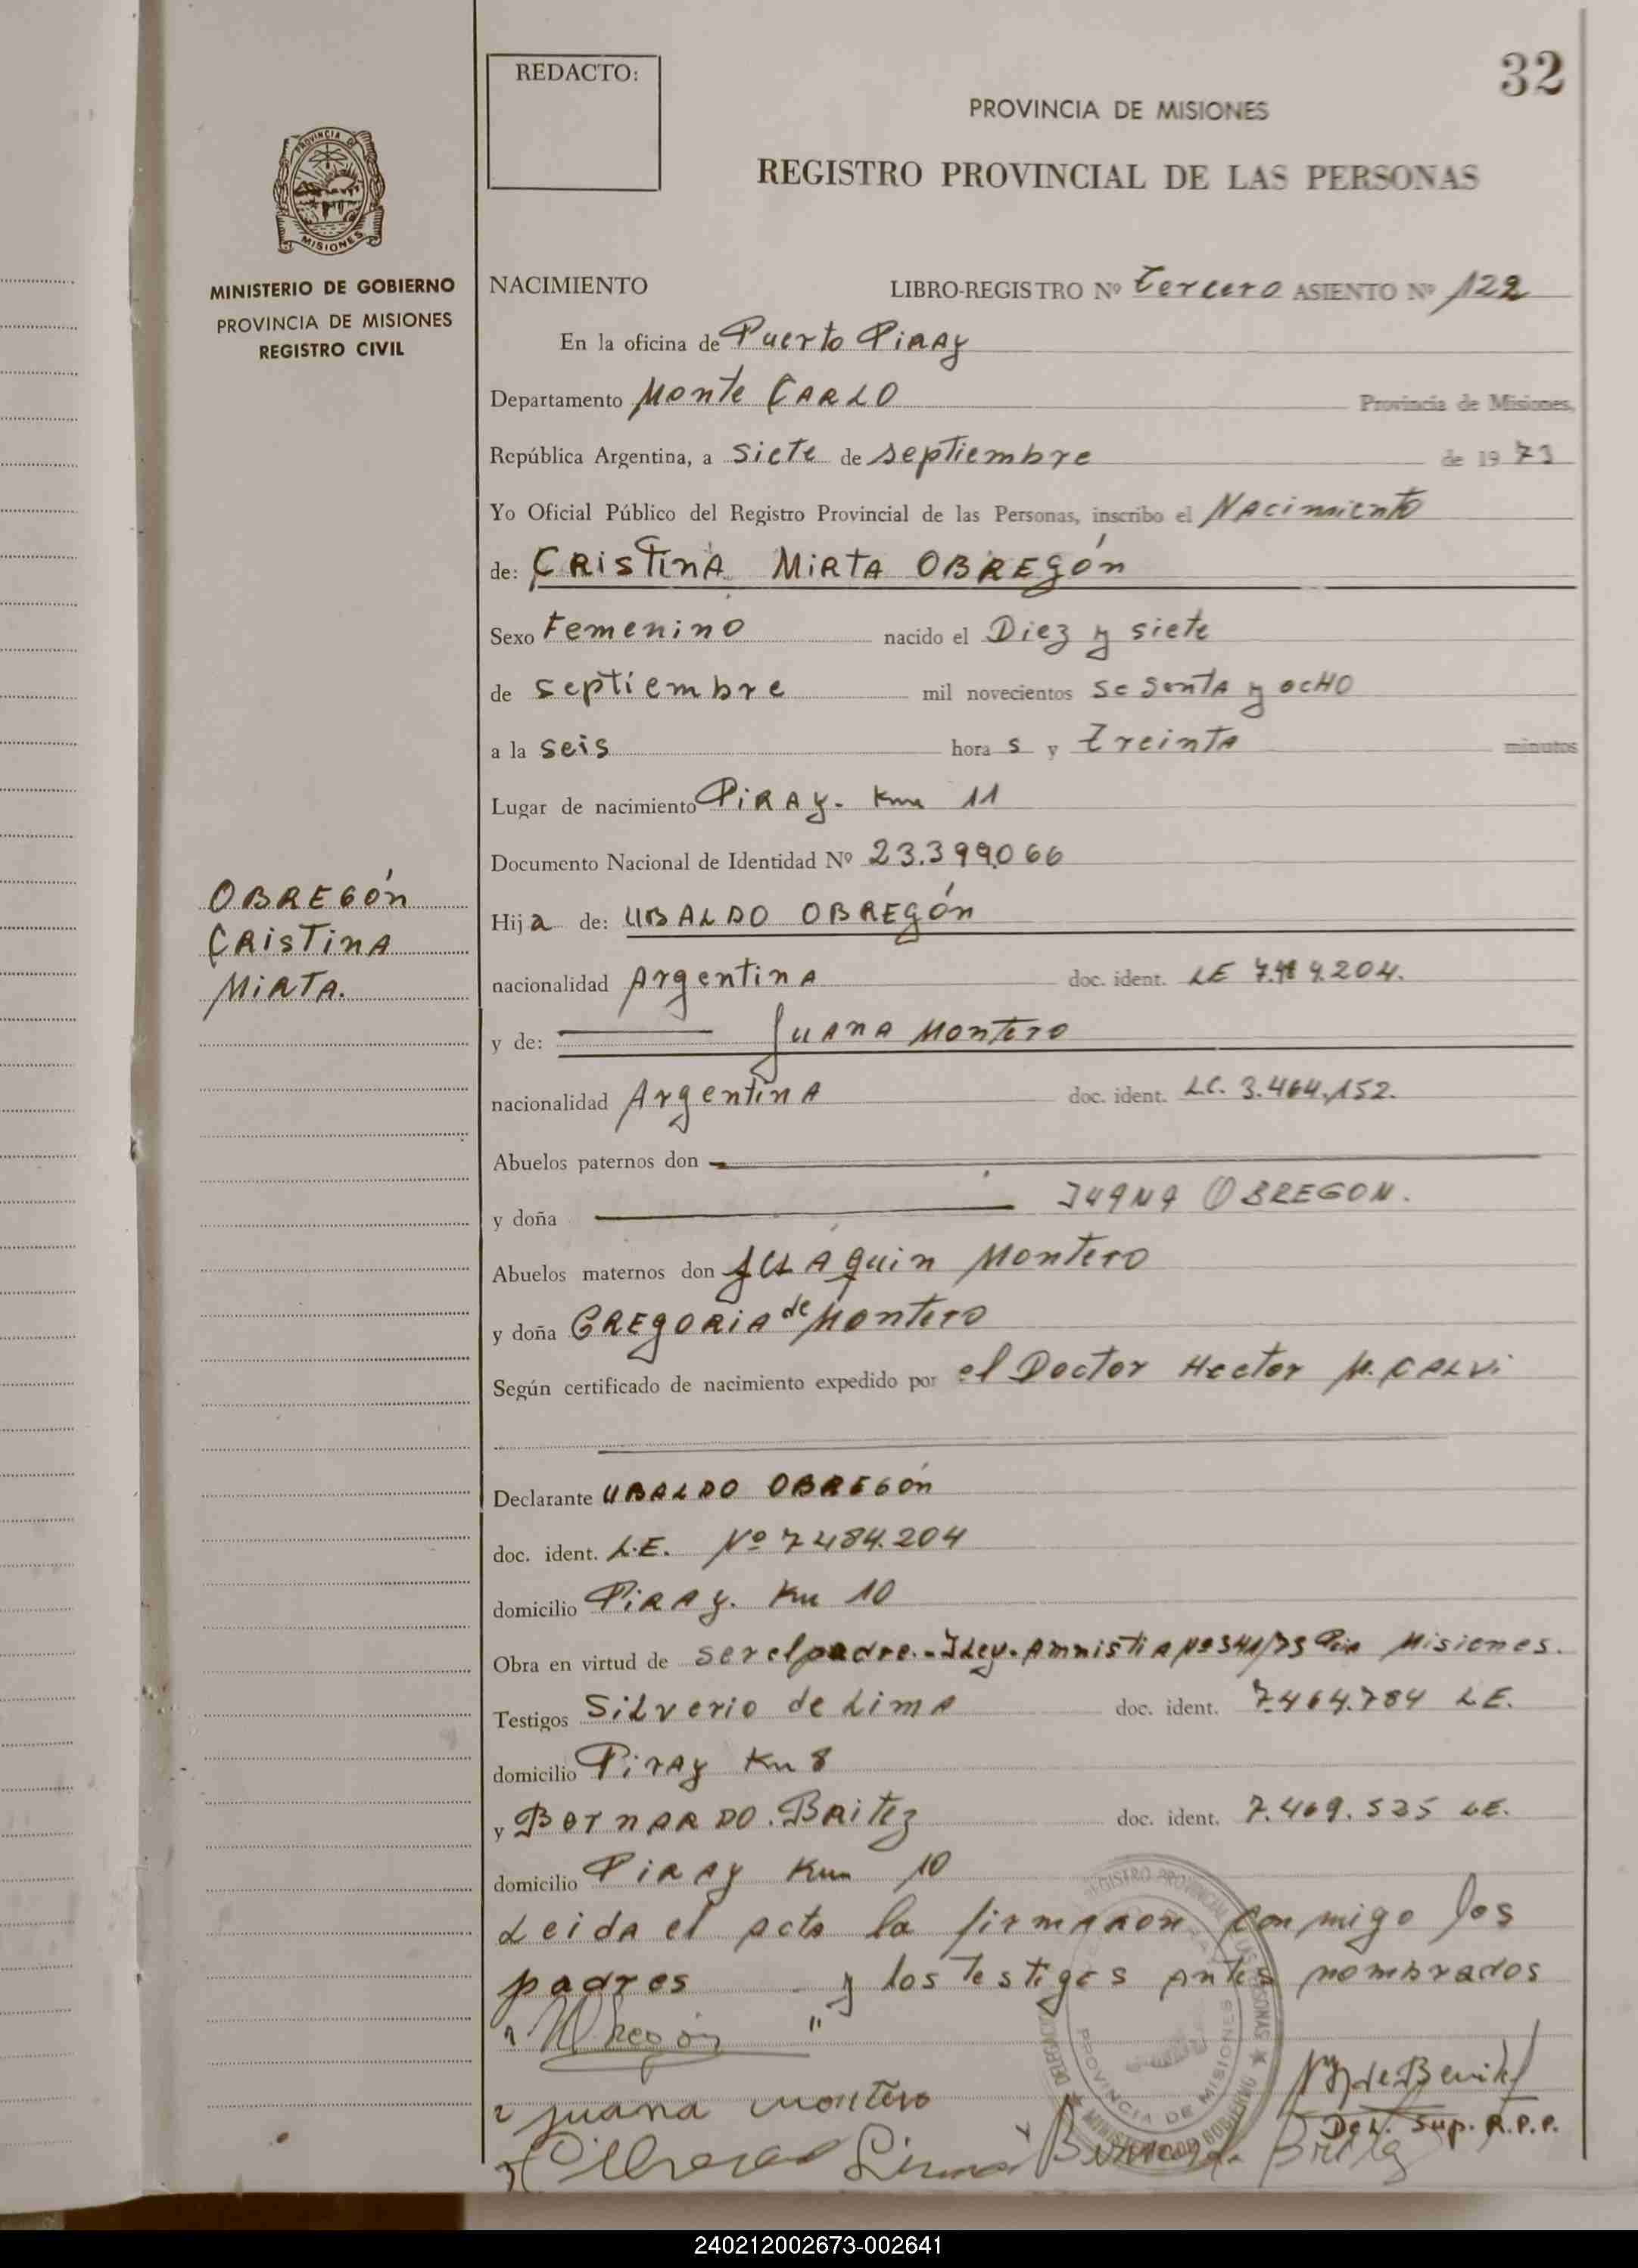 32
REDACTO:
PROVINCIA DE MISIONES
REGISTRO PROVINCIAL DE LAS PERSONAS
PROVINCIA DE
MISIONES
MINISTERIO DE GOBIERNO
PROVINCIA DE MISIONES
REGISTRO CIVIL
NACIMIENTO LIBRO-REGISTRO Nº tercero ASIENTO Nº 122
En la oficina de Puerto PiRAy
Departamento Monte CARLO Provincia de Misiones,
República Argentina, a siete de septiembre de 19 73
Yo Oficial Público del Registro Provincial de las Personas, inscribo el NAcimiento
de: CRisTinA MiRTA OBREgón
Sexo Femenino nacido el Diez y siete
de septiembre mil novecientos sesentA y ocHO
a la seis hora s y treintA minutos
Lugar de nacimiento PiRAy. Km 11
Documento Nacional de Identidad Nº 23.399.066
OBREGón
CRisTinA
MiRTA.
Hija de: UBALDO OBREGón
nacionalidad ArgentinA doc. ident. LE
y de: JuAnA Montero
nacionalidad ArgentinA doc. ident. L.C. 3.464.152.
Abuelos paternos don
y doña JUANA OBREGON.
Abuelos maternos don Montero
y doña GREgORiA de Montero
Según certificado de nacimiento expedido por el Doctor Hector CALVi
Declarante UBALDO OBREGón
doc. ident. L.E. Nº 7484.204
domicilio PiRAy. Km 10
Obra en virtud de ser el padre.- Ley. AmnistiA Nº 341/73 Misiones.
Testigos SiLverio de LimA doc. ident. 7.464.784 L.E.
domicilio PirAy Km 8
y BernARDO. BRiTez doc. ident. 7.469.525 LE.
domicilio PiRAy Km 10
LeidA el acta la firmaron conmigo los
padres y los testigos antes nombrados
REGISTRO PROVINCIAL DE LAS PERSONAS
MINISTERIO DE GOBIERNO
PROVINCIA DE MISIONES
Obregón
juana montero
Del. Sup. R.P.P.
Lima
Britez
240212002673-002641